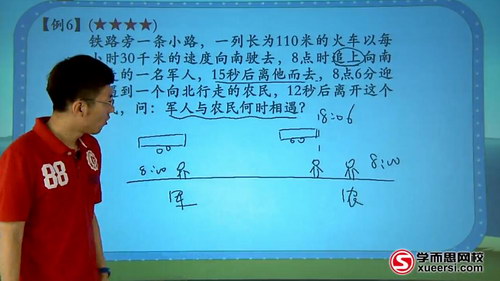 【例6】(★★★★)
铁路旁一条小路，一列长为110米的火车以每
小时30千米的速度向南驶去，8点时追上向南
的一名军人，15秒后离他而去，8点6分迎
遇到一个向北行走的农民，12秒后离开这个
，问：军人与农民何时相遇？
18:06
8:00
8:00
军
农
88
学而思网校
xueersi.com